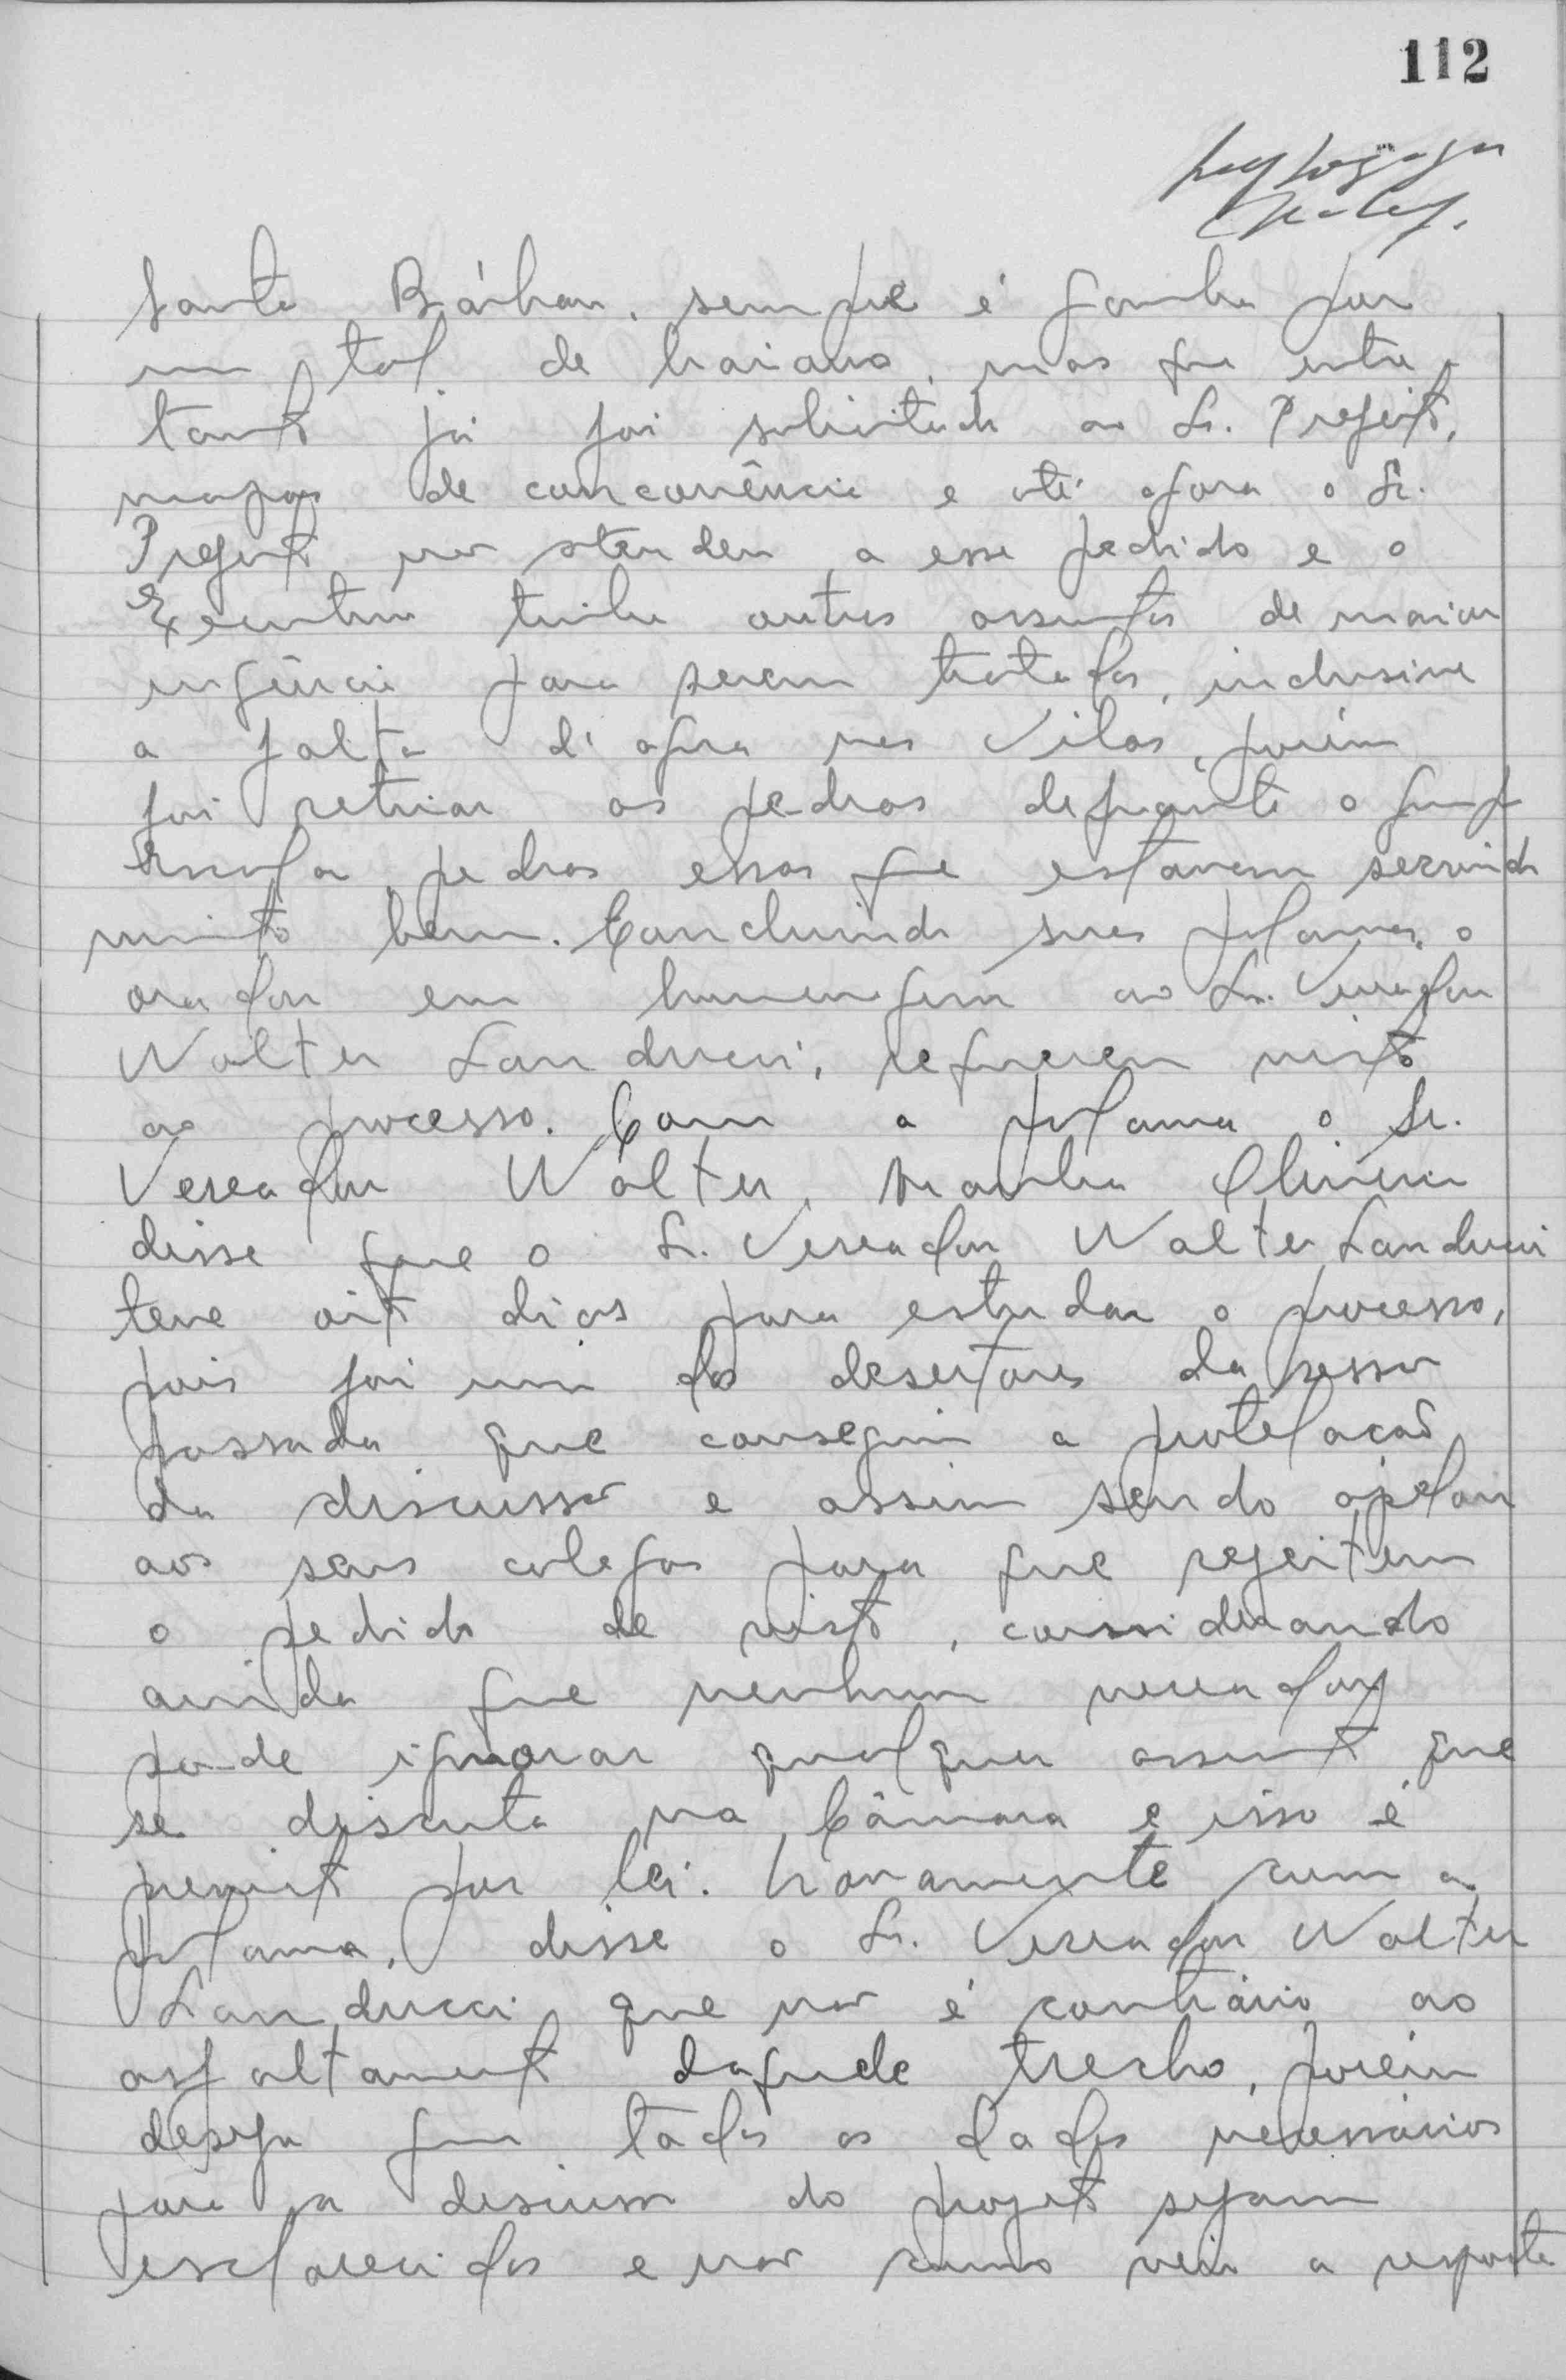 112
Santa Bárbara, sempre é ganha por
um tal de baiano, mas que entre
tanto já foi solicitado ao Sr. Prefeito,
mapas de concorrência e até agora o Sr.
Prefeito não atendeu a esse pedido e o
Executivo tinha outros assuntos de maior
urgência para serem tratados, inclusive
a falta d'agua nas Vilas, porém
foi retirar as pedras defronte o Grupo
Escolar, pedras essas que estavam servindo
muito bem. Concluindo sua palavra, o
orador em homenagem ao Sr. Vereador
Walter Landucci, requereu visto
ao processo. Com a palavra o Sr.
Vereador Wálter Oliveira
disse que o Sr. Vereador Walter Landucci
teve oito dias para estudar o processo,
pois foi um dos desertores da sessão
passada que conseguiu a protelação
da discussão e assim sendo apelou
aos seus colegas para que rejeitem
o pedido de visto, considerando
ainda que nenhum vereador
pode ignorar qualquer assunto que
se discuta na Câmara e isso é
previsto por lei. Novamente com a
palavra, disse o Sr. Vereador Walter
Landucci que não é contrário ao
asfaltamento daquele trecho, porém
deseja que todos os dados necessários
para a discussão do projeto sejam
esclarecidos e não como veio a resposta